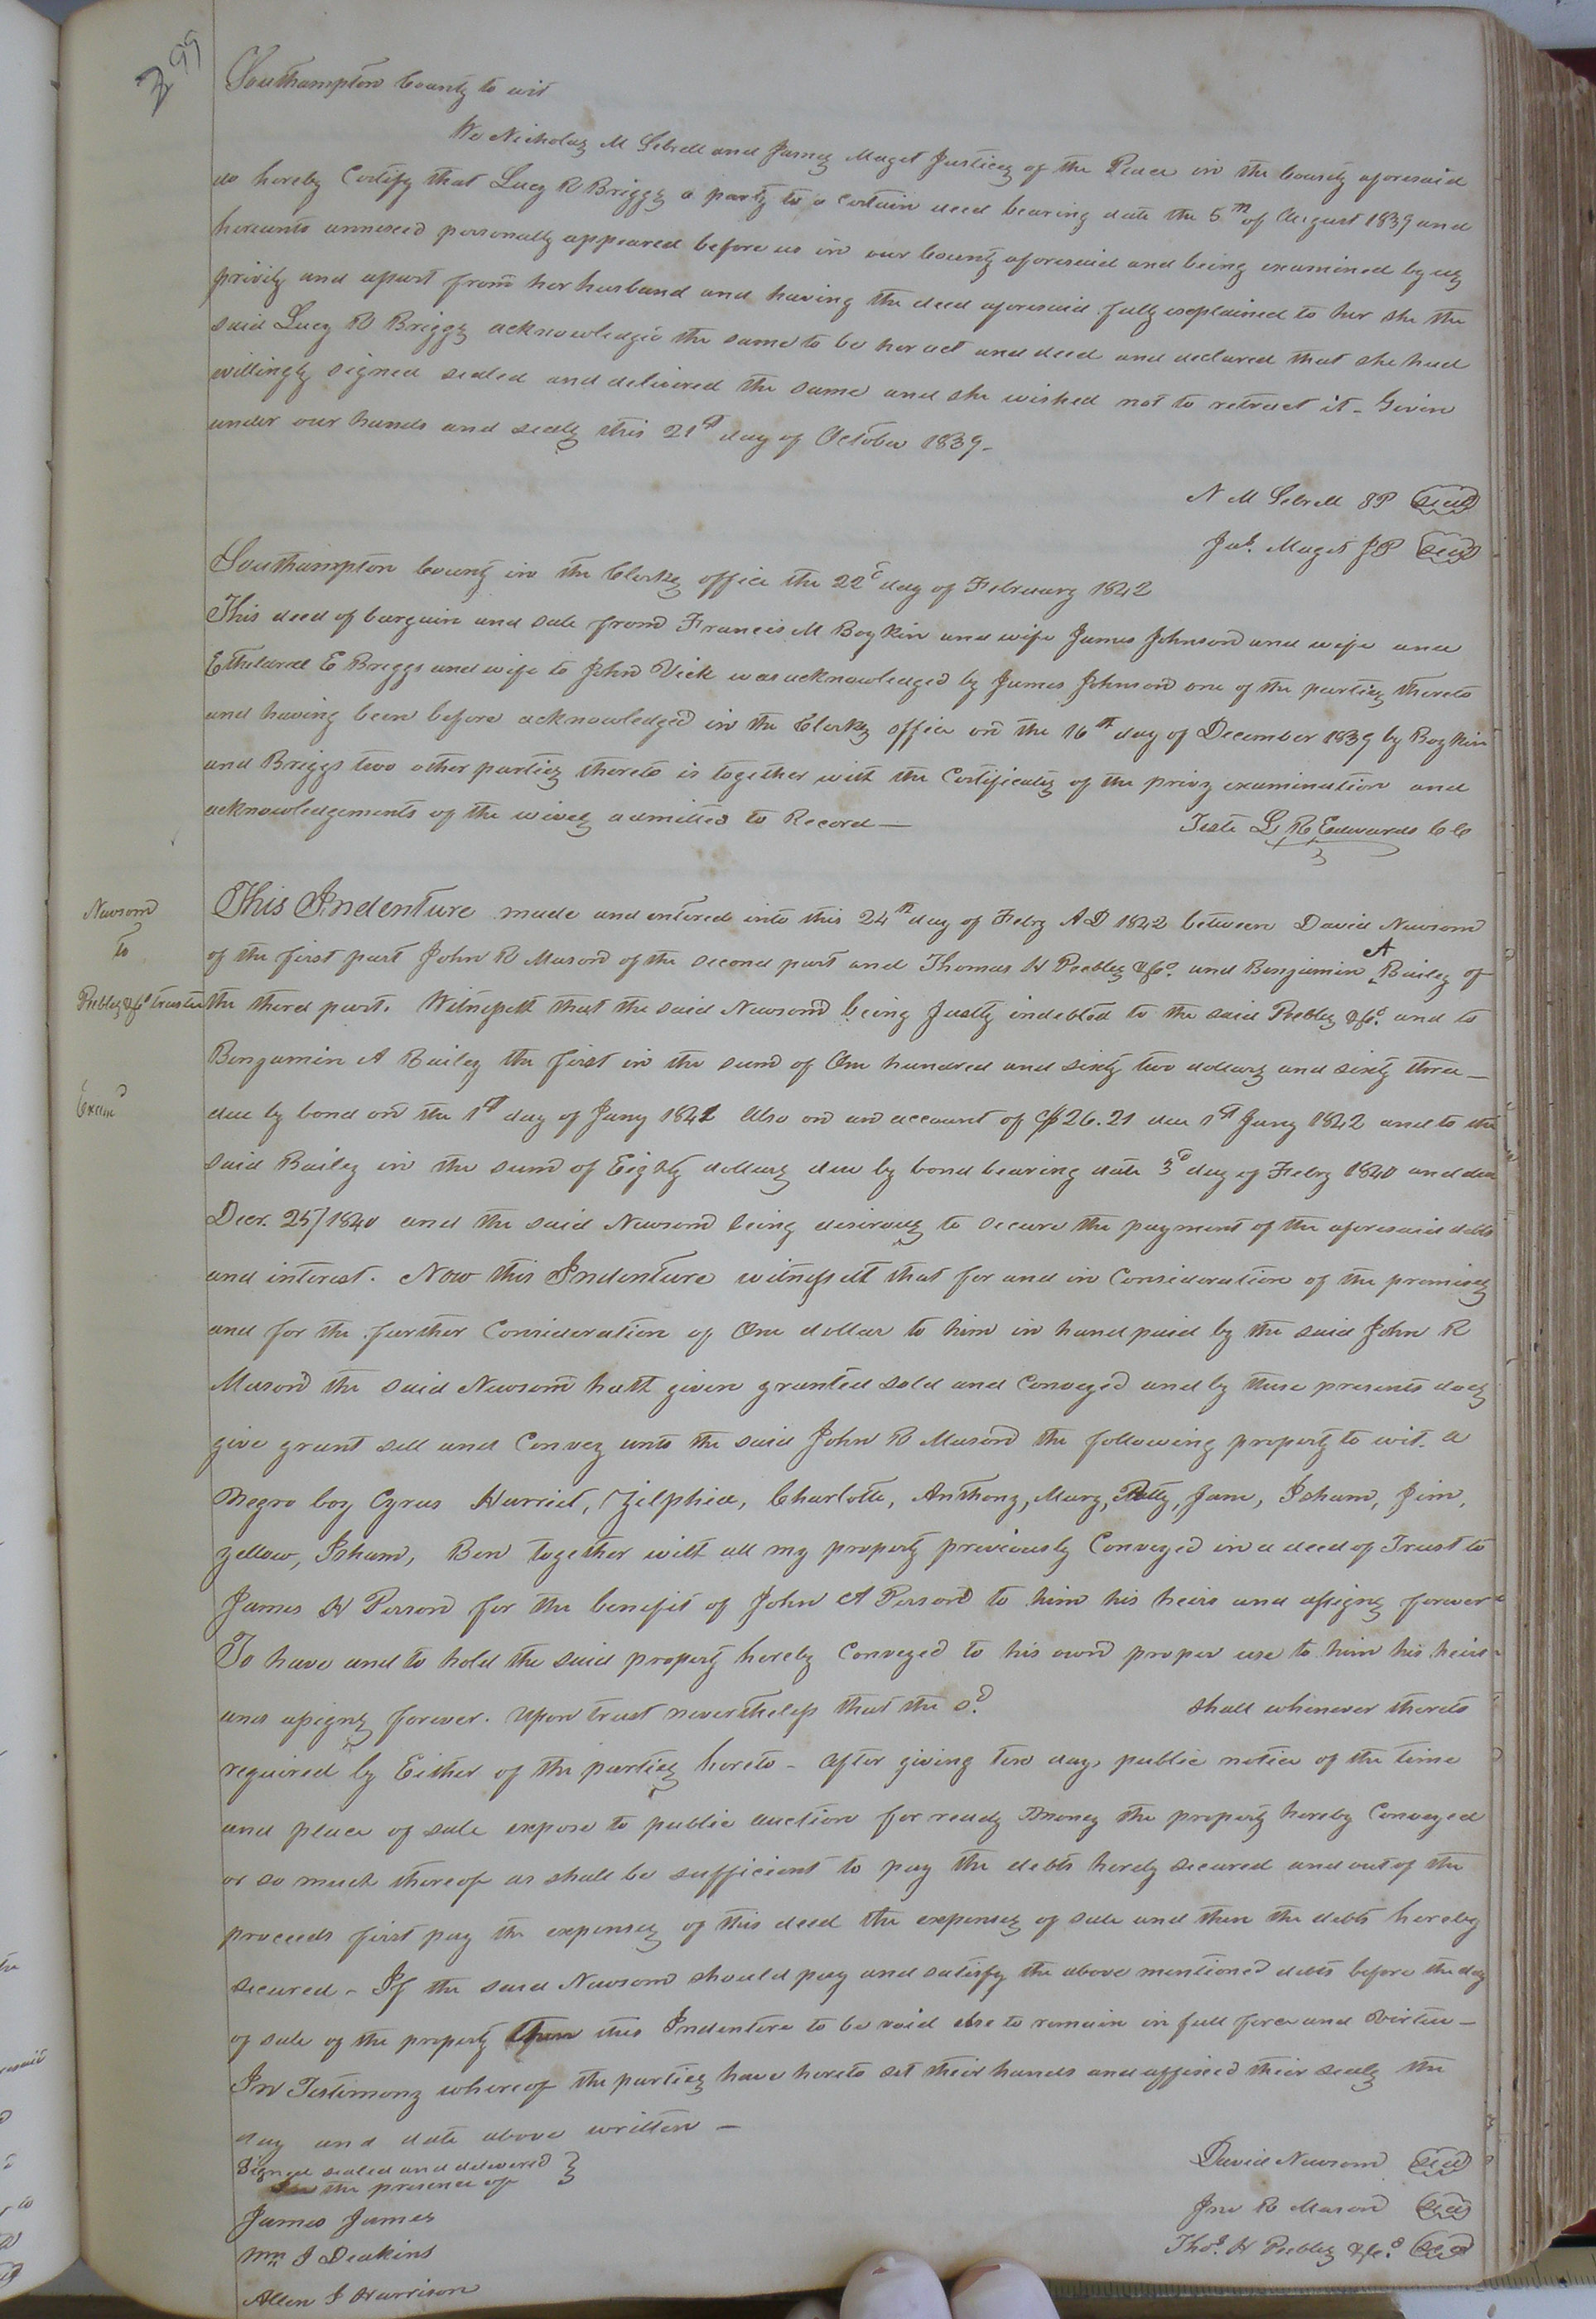 299
Southampton County to wit
We Nicholas M Sebrell and James Maget Justices of the Peace in the County aforesaid
do hereby Certify that Lucy R Briggs a party to a certain deed bearing date the 5th of August 1839 and
hereunto annexed personally appeared before us in our County aforesaid and being examined by us
privily and apart from her husband and having the deed aforesaid fully explained to her she the
said Lucy R Briggs acknowledged the same to be her act and deed and declared that she had
willingly signed sealed and delivered the same and she wished not to retract it - Given
under our hands and seals this 21st day of October 1839 -
N M Sebrell JP Seal
Jas. Maget JP Seal
Southampton County in the Clerks office the 22d day of February 1842
This deed of bargain and sale from Francis M Boykin and wife James Johnson and wife and
Etheldred E Briggs and wife to John Vick was acknowledged by James Johnson one of the parties thereto
and having been before acknowledged in the Clerks office on the 16th day of December 1839 by Boykin
and Briggs two other parties thereto is together with the Certificates of the privy examination and
acknowledgements of the wives admitted to Record —
Teste L R Edwards CC
Newsom
to
Peebles & Co trustee
Examd
This Indenture made and entered into this 24th day of Feby A D 1842 between David Newsom
of the first part John R Mason of the second part and Thomas H Peebles & Co. and Benjamin A Bailey of
the third part. Witnesseth that the said Newsom being Justly indebted to the said Peebles & Co. and to
Benjamin A Bailey the first in the sum of One hundred and sixty two dollars and sixty three —
due by bond on the 1st day of Jany 1841 Also on an account of $26.21 due 1st Jany 1842 and to the
said Bailey in the sum of Eighty dollars due by bond bearing date 3d day of Feby 1840 and due
Decr. 25/1840 and the said Newsom being desirous to secure the payment of the aforesaid debts
and interest. Now this Indenture witnesseth that for and in Consideration of the premises
and for the further Consideration of One dollar to him in hand paid by the said John R
Mason the said Newsom hath given granted sold and Conveyed and by these presents does
give grant sell and Convey unto the said John R Mason the following property to wit. a
Negro boy Cyrus Harriet, Zilphia, Charlotte, Anthony, Mary, Patty, Jane, Isham, Jim,
yellow, Isham, Ben together with all my property previously Conveyed in a deed of Trust to
James H Person for the benefit of John A Person to him his heirs and assigns forever
To have and to hold the said property hereby Conveyed to his own proper use to him his heirs
and assigns forever. Upon trust nevertheless that the sd. shall whenever thereto
required by Either of the parties hereto - after giving ten days public notice of the time
and place of sale expose to public auction for ready money the property hereby Conveyed
or so much thereof as shall be sufficient to pay the debts hereby secured and out of the
proceeds first pay the expenses of this deed the expenses of sale and then the debts hereby
secured - If the said Newsom should pay and satisfy the above mentioned debts before the day
of sale of the property then this Indenture to be void else to remain in full force and virtue —
In Testimony whereof the parties have hereto set their hands and affixed their seals the
day and date above written —
Signed sealed and delivered
In the presence of
David Newsom Seal
James James
Jno R Mason Seal
Wm J Deakins
Thos. H Peebles & Co. Seal
Allen J Harrison